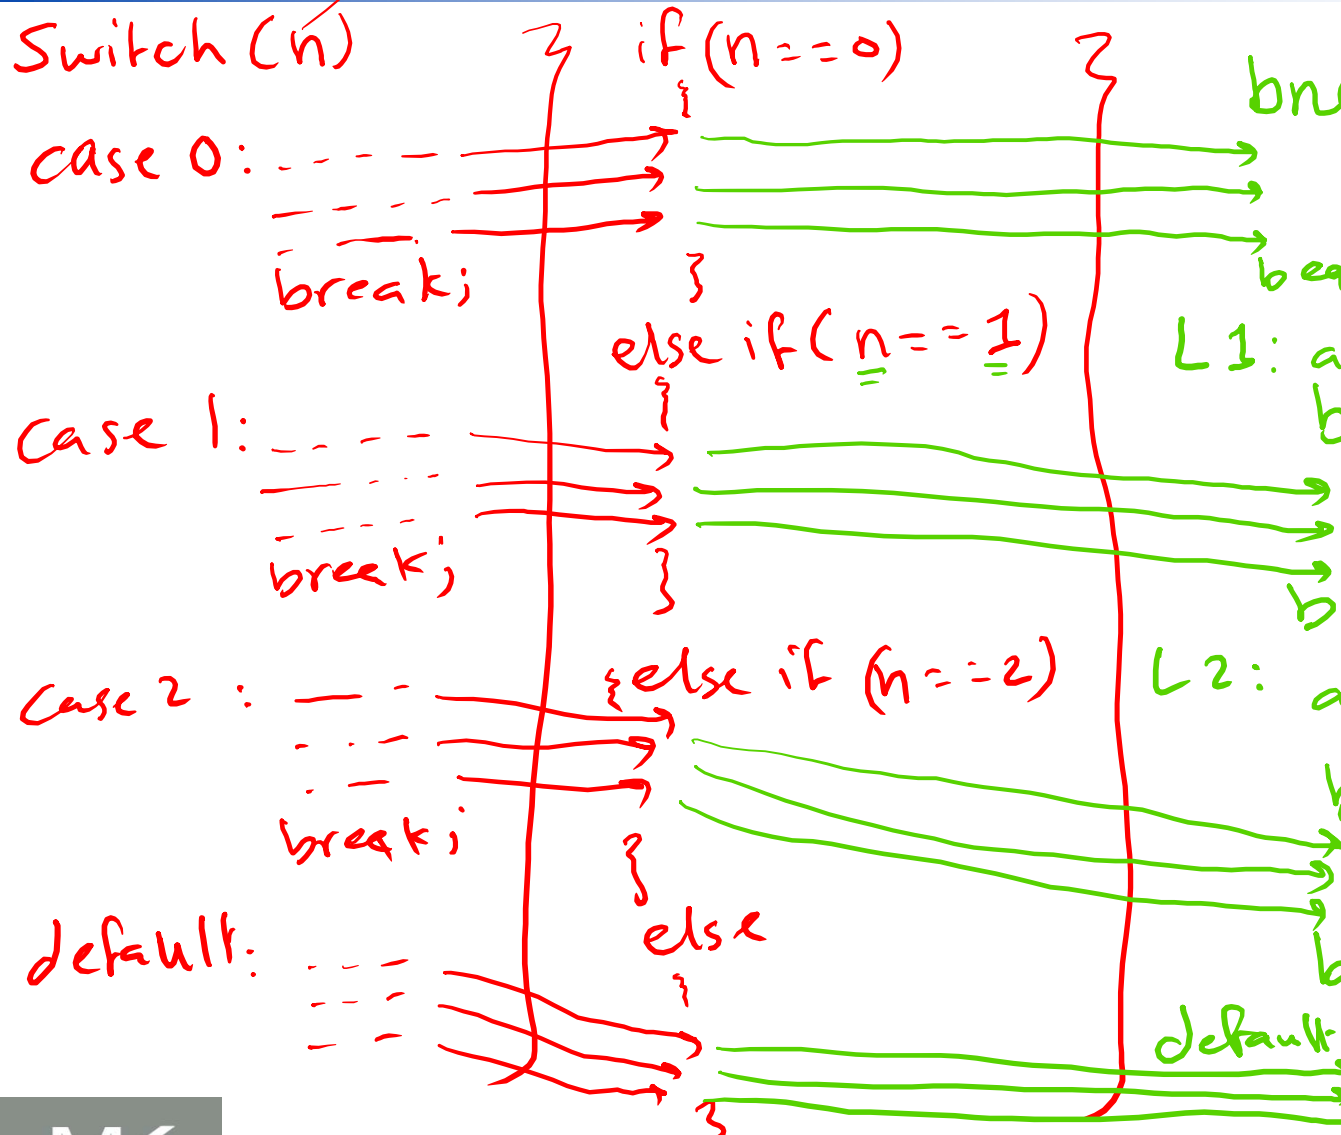 Switch (n)
case 0:
break;
case 1:
break;
case 2 :
break;
default:
if (n == 0)
{
}
else if ( n == 1)
{
}
{ else if (n == 2)
}
else
{
}
L1: a
b
b
L2:
a
b
default